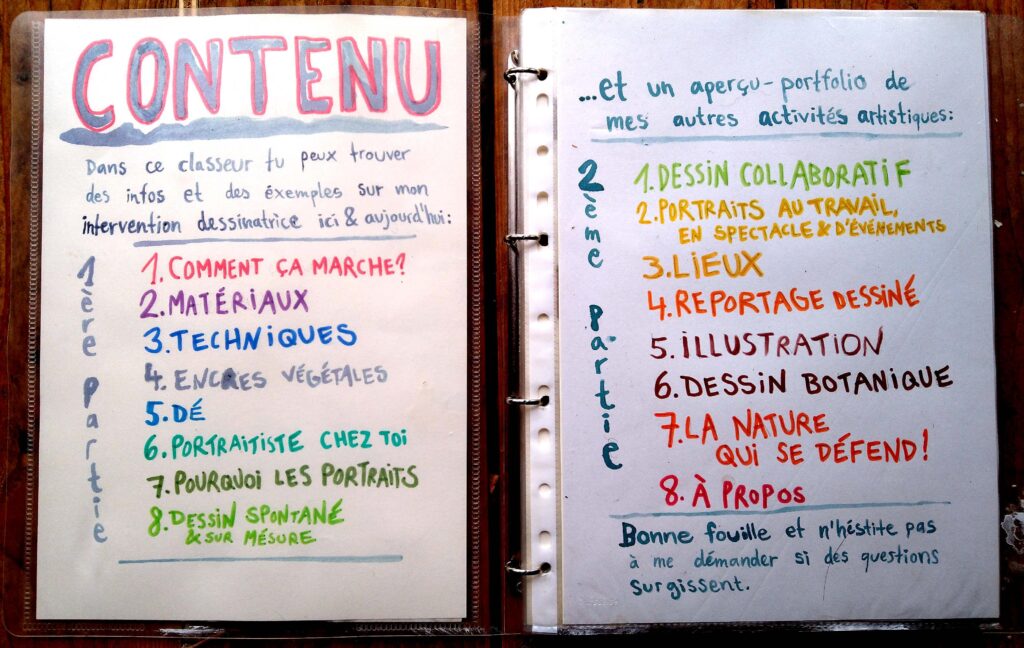 CONTENU
Dans ce classeur tu peux trouver
des infos et des éxemples sur mon
intervention dessinatrice ici & aujourd'hui:
1ère partie
1. COMMENT ÇA MARCHE?
2. MATÉRIAUX
3. TECHNIQUES
4. ENCRES VÉGÉTALES
5. DÉ
6. PORTRAITISTE CHEZ TOI
7. POURQUOI LES PORTRAITS
8. DESSIN SPONTANÉ
& SUR MÉSURE
...et un aperçu-portfolio de
mes autres activités artistiques:
2ème partie
1. DESSIN COLLABORATIF
2. PORTRAITS AU TRAVAIL,
EN SPECTACLE & D'ÉVÉNEMENTS
3. LIEUX
4. REPORTAGE DESSINÉ
5. ILLUSTRATION
6. DESSIN BOTANIQUE
7. LA NATURE
QUI SE DÉFEND!
8. À PROPOS
Bonne fouille et n'héstite pas
à me démander si des questions
surgissent.